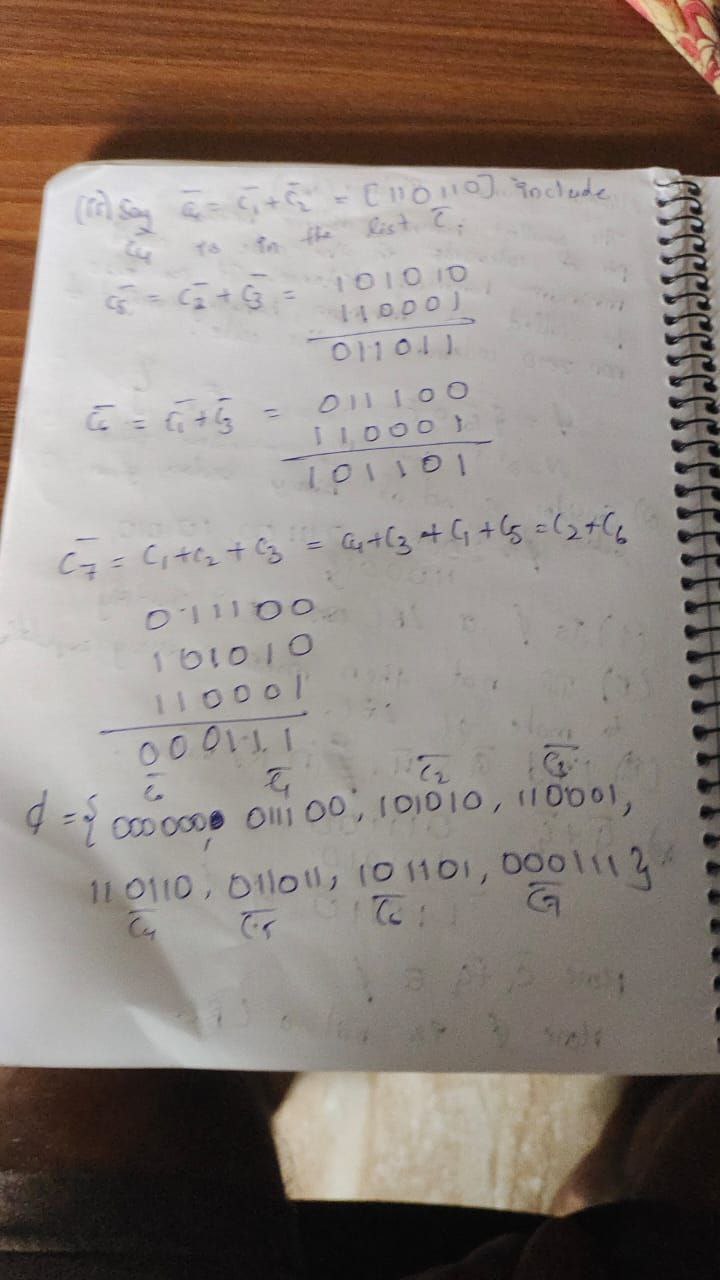 (iii) Say c̄4 = c̄1 + c̄2 = [110110] include
c̄4 to in the list c̄.
c̄5 = c̄2 + c̄3 = 101010
110001
011011
c̄6 = c̄1 + c̄3 = 011100
110001
101101
c̄7 = c1 + c2 + c3 = c4 + c3 + c1 + c5 = c2 + c6
011100
101010
110001
000111
c̄0 c̄1 c̄2 c̄3
₵ = { 000000, 011100, 101010, 110001,
110110, 011011, 101101, 000111 }
c̄4 c̄5 c̄6 c̄7